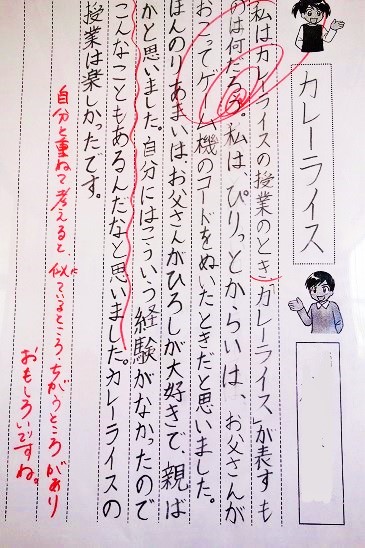 カレーライス
私はカレーライスの授業のとき「カレーライス」が表すも
のは何だろう。私は、ぴりっとからいは、お父さんが
おこってゲーム機のコードをぬいたときだと思いました。
ほんのりあまいは、お父さんがひろしが大好きで、親ば
かと思いました。自分にはこういう経験がなかったので
こんなこともあるんだなと思いました。カレーライスの
授業は楽しかったです。
自分と重ねて考えると、似ているところ、ちがうところがあり
おもしろいですね。